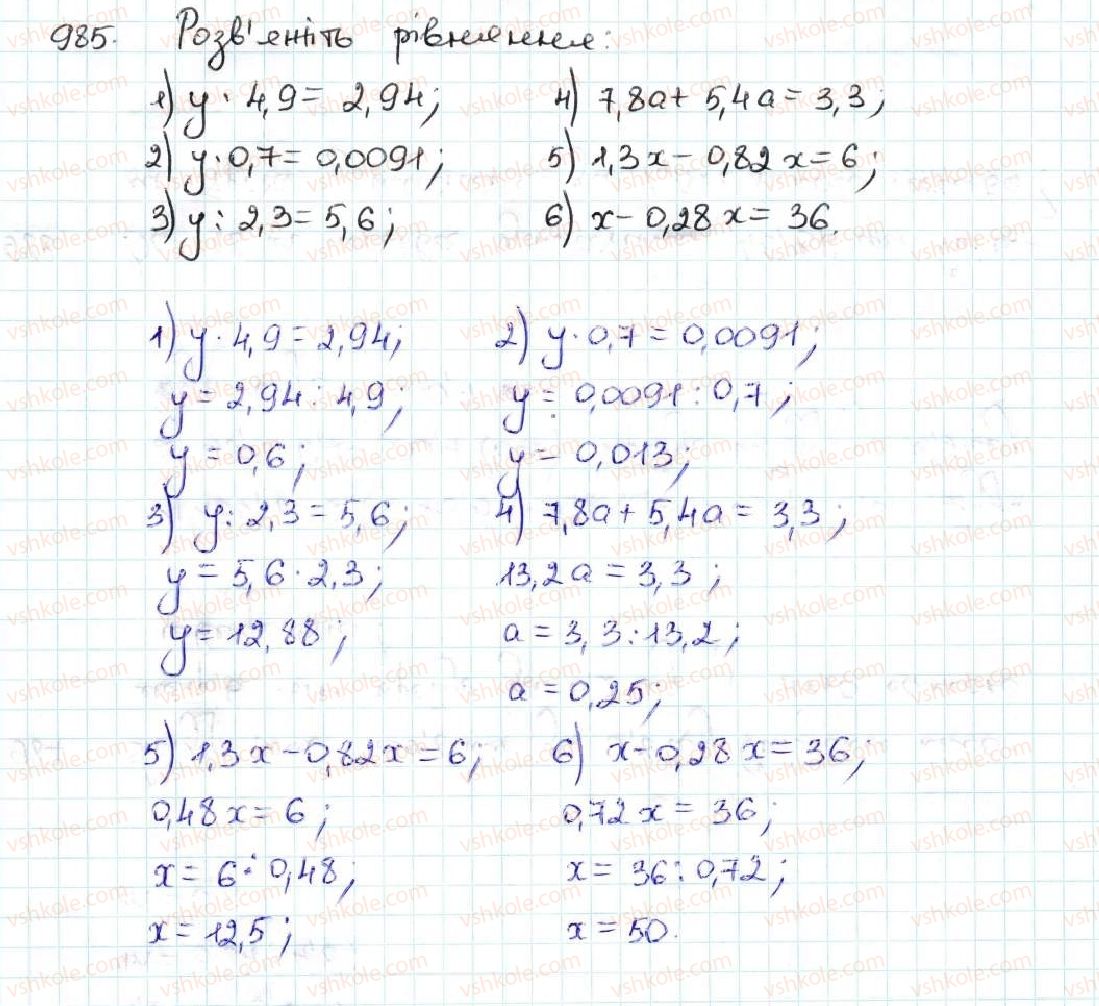 985. Розв'яжіть рівняння:
1) y · 4,9 = 2,94; 4) 7,8a + 5,4a = 3,3;
2) y · 0,7 = 0,0091; 5) 1,3x - 0,82x = 6;
3) y : 2,3 = 5,6; 6) x - 0,28x = 36.
1) y · 4,9 = 2,94; 2) y · 0,7 = 0,0091;
y = 2,94 : 4,9; y = 0,0091 : 0,7;
y = 0,6; y = 0,013;
3) y : 2,3 = 5,6; 4) 7,8a + 5,4a = 3,3;
y = 5,6 · 2,3; 13,2a = 3,3;
y = 12,88; a = 3,3 : 13,2;
a = 0,25;
5) 1,3x - 0,82x = 6; 6) x - 0,28x = 36;
0,48x = 6; 0,72x = 36;
x = 6 : 0,48; x = 36 : 0,72;
x = 12,5; x = 50.
vshkole.com